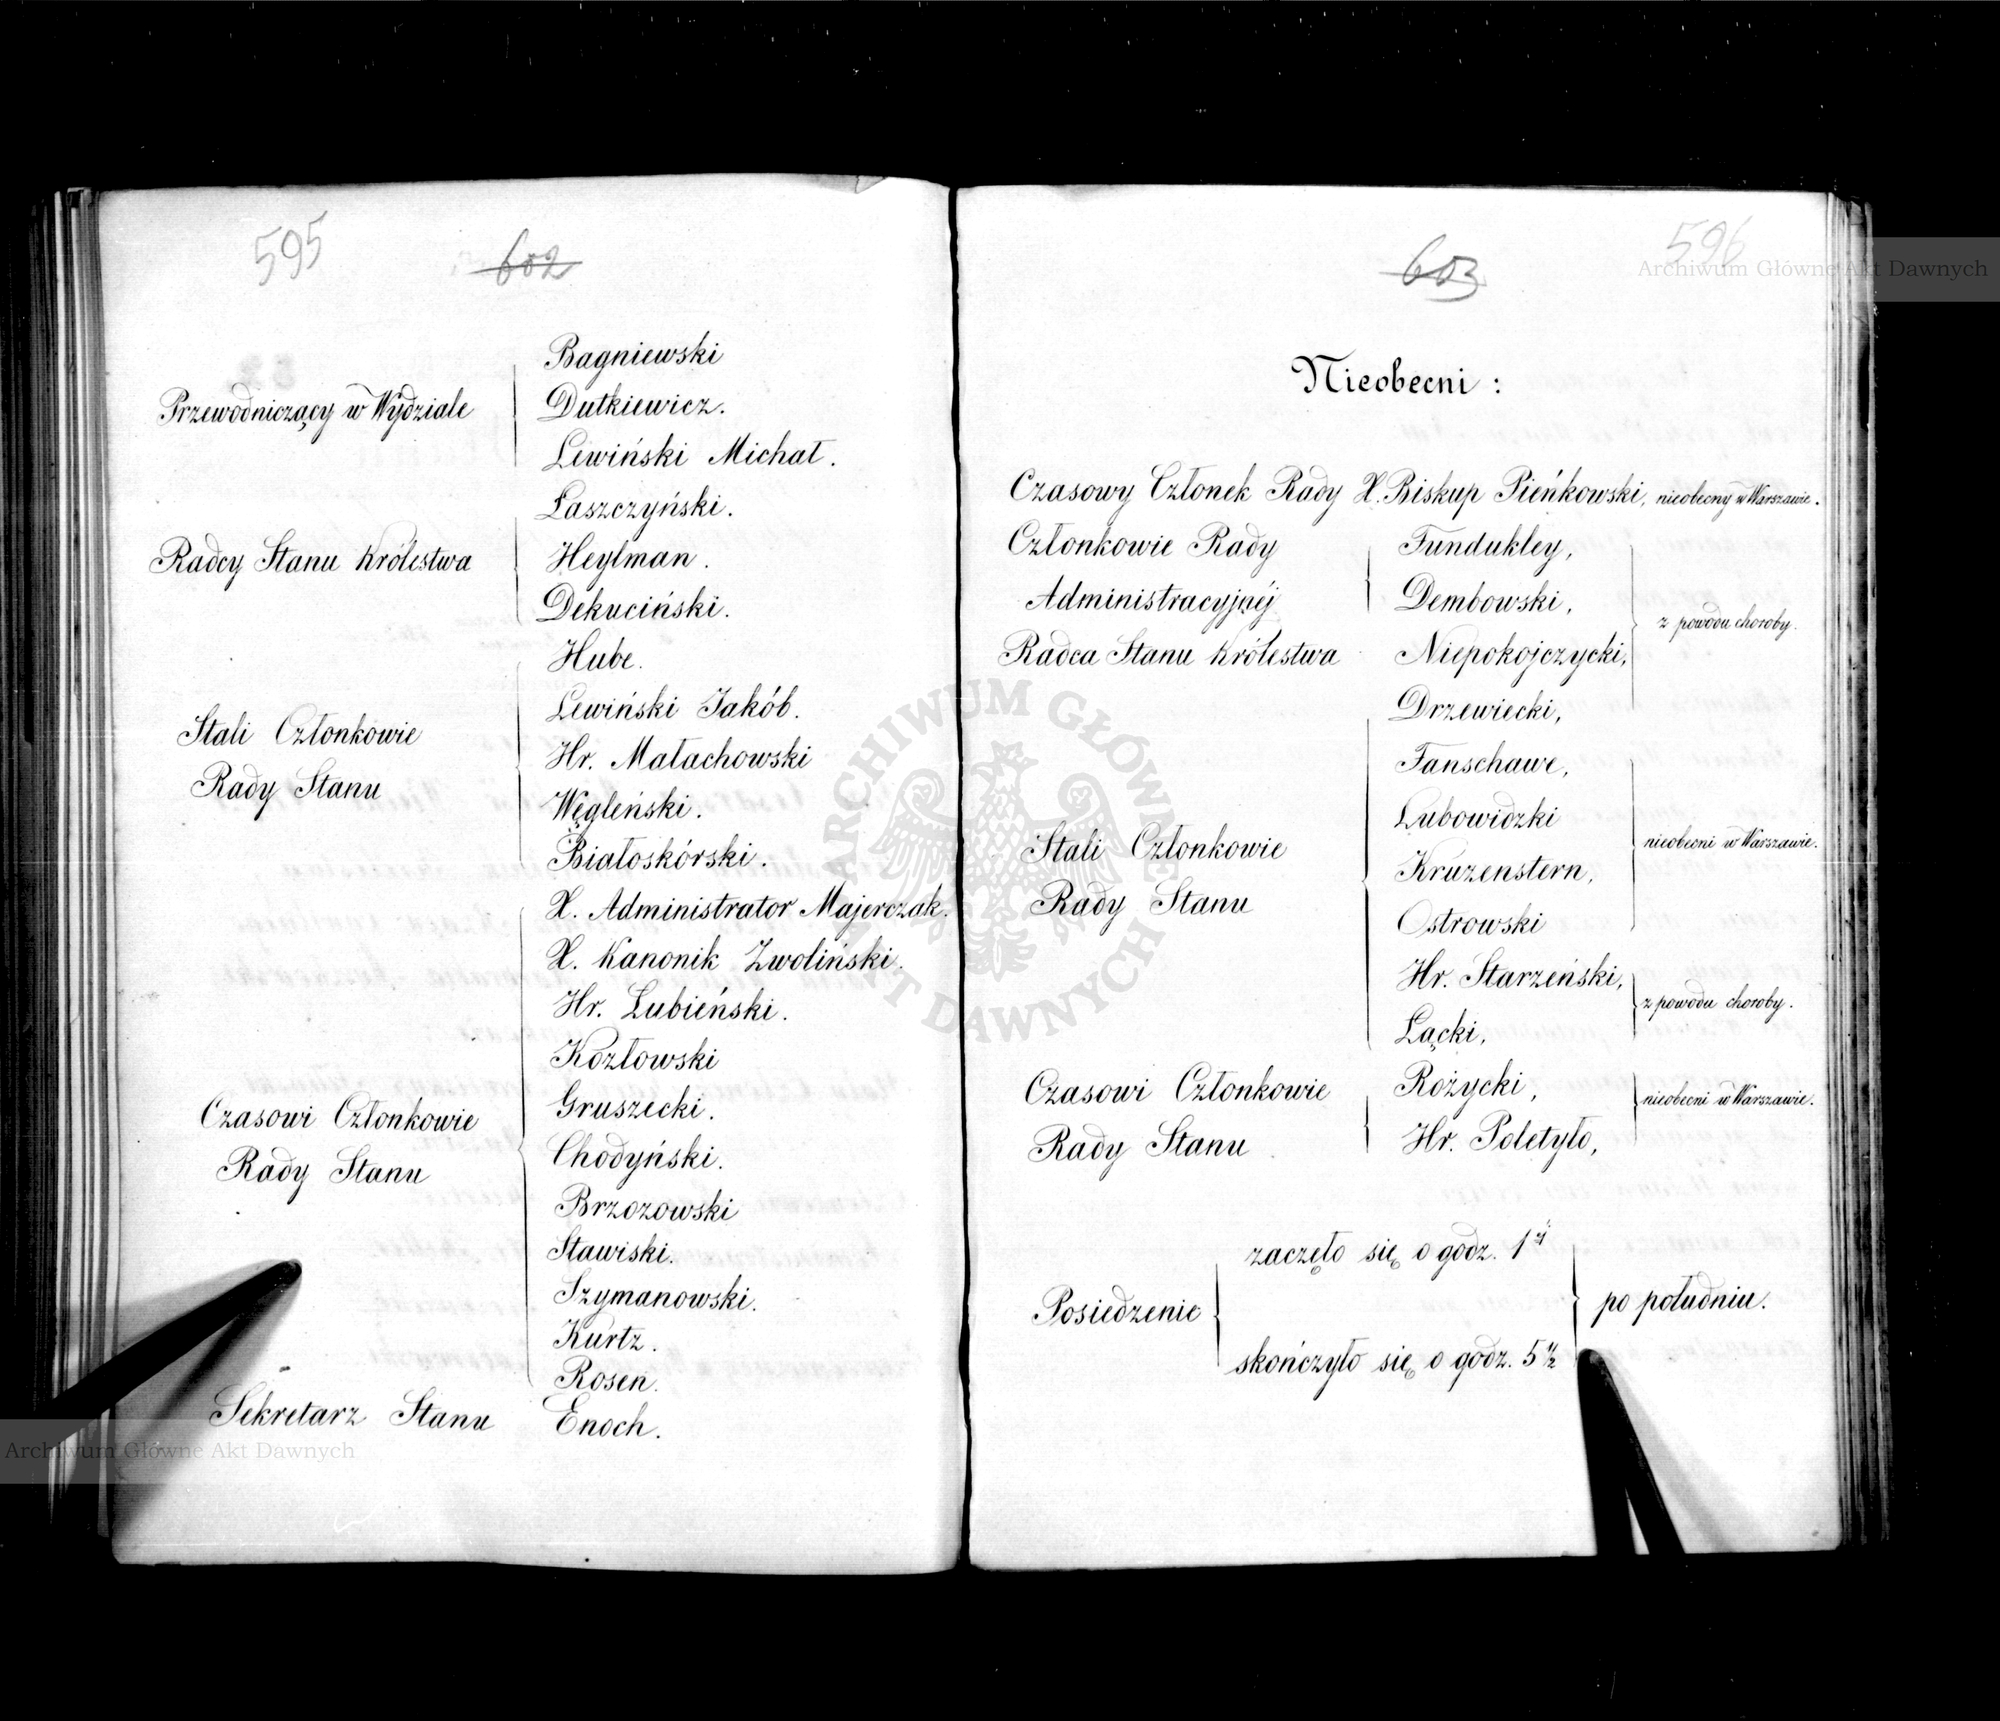 595
602
Bagniewski
Przewodniczący w Wydziale
Dutkiewicz.
Lewiński Michał.
Łaszczyński.
Radcy Stanu Królestwa
Heylman.
Dekuciński.
Hube.
Lewiński Jakób.
Stali Członkowie
Hr. Małachowski
Rady Stanu
Węgleński.
Białoskórski.
X. Administrator Majerczak.
X. Kanonik Zwoliński.
Hr. Łubieński.
Kozłowski
Gruszecki.
Czasowi Członkowie
Chodyński.
Rady Stanu
Brzozowski
Stawiski.
Szymanowski.
Kurtz.
Rosen.
Sekretarz Stanu Enoch.
Archiwum Główne Akt Dawnych
596
603
Archiwum Główne Akt Dawnych
Nieobecni:
Czasowy Członek Rady X. Biskup Pieńkowski, nieobecny w Warszawie.
Członkowie Rady Fundukley,
Administracyjnéj Dembowski,
z powodu choroby.
Radca Stanu Królestwa Niepokojczycki,
Drzewiecki,
Fanschawe,
Lubowidzki
nieobecni w Warszawie.
Stali Członkowie
Kruzenstern,
Rady Stanu
Ostrowski
Hr. Starzeński,
z powodu choroby.
Łącki,
Czasowi Członkowie Rożycki,
nieobecni w Warszawie.
Rady Stanu Hr. Poletyło,
zaczęło się o godz. 1éj
Posiedzenie
po południu.
skończyło się o godz. 5 1/2
ARCHIWUM GŁÓWNE AKT DAWNYCH